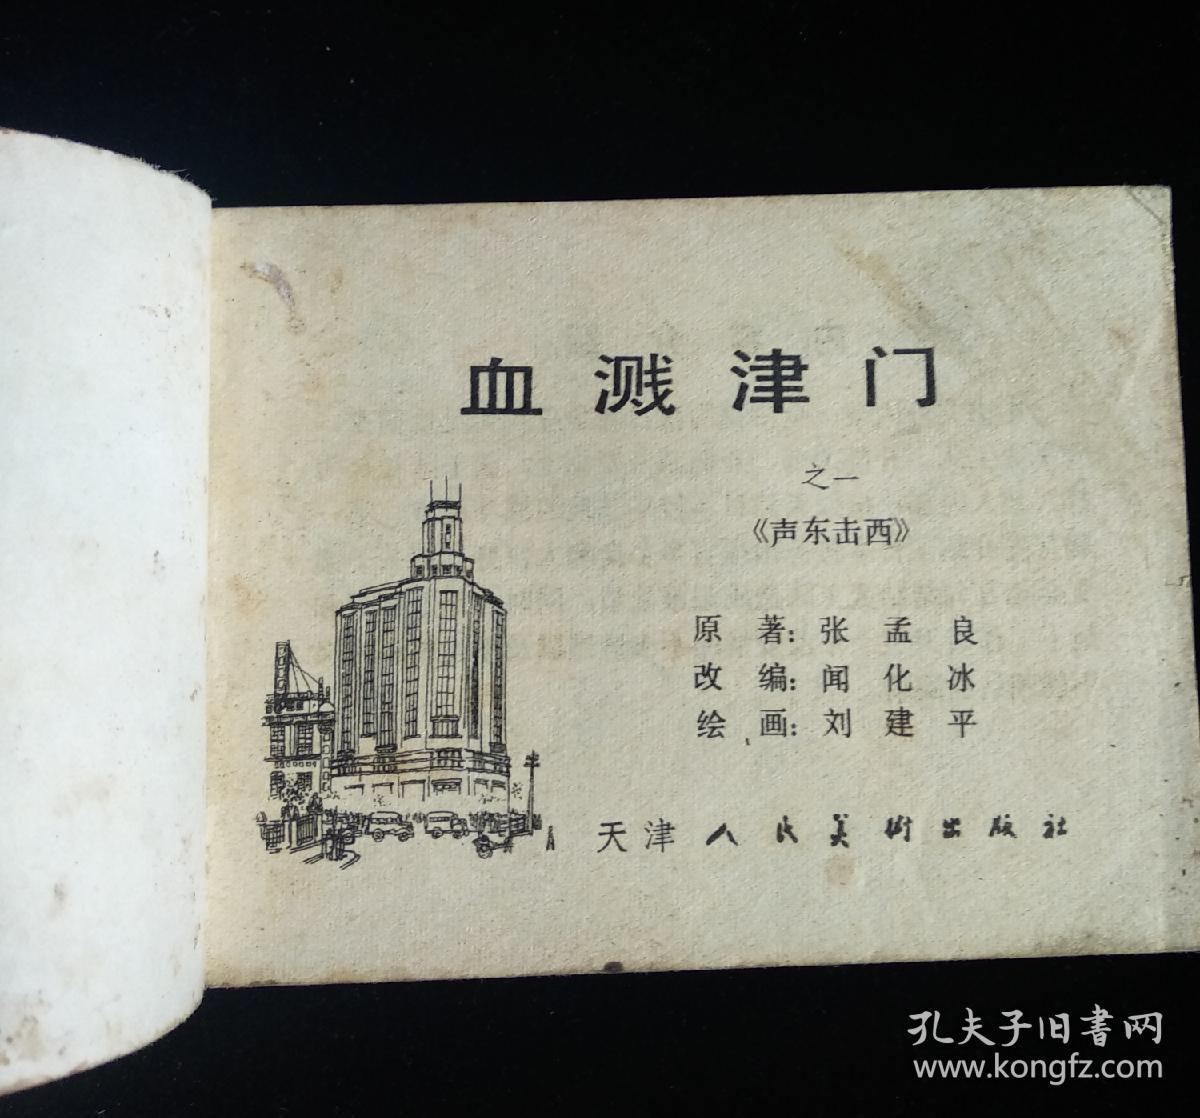 血溅津门
之一
《声东击西》
原著：张孟良
改编：闻化冰
绘画：刘建平
天津人民美術出版社
孔夫子旧書网
www.kongfz.com